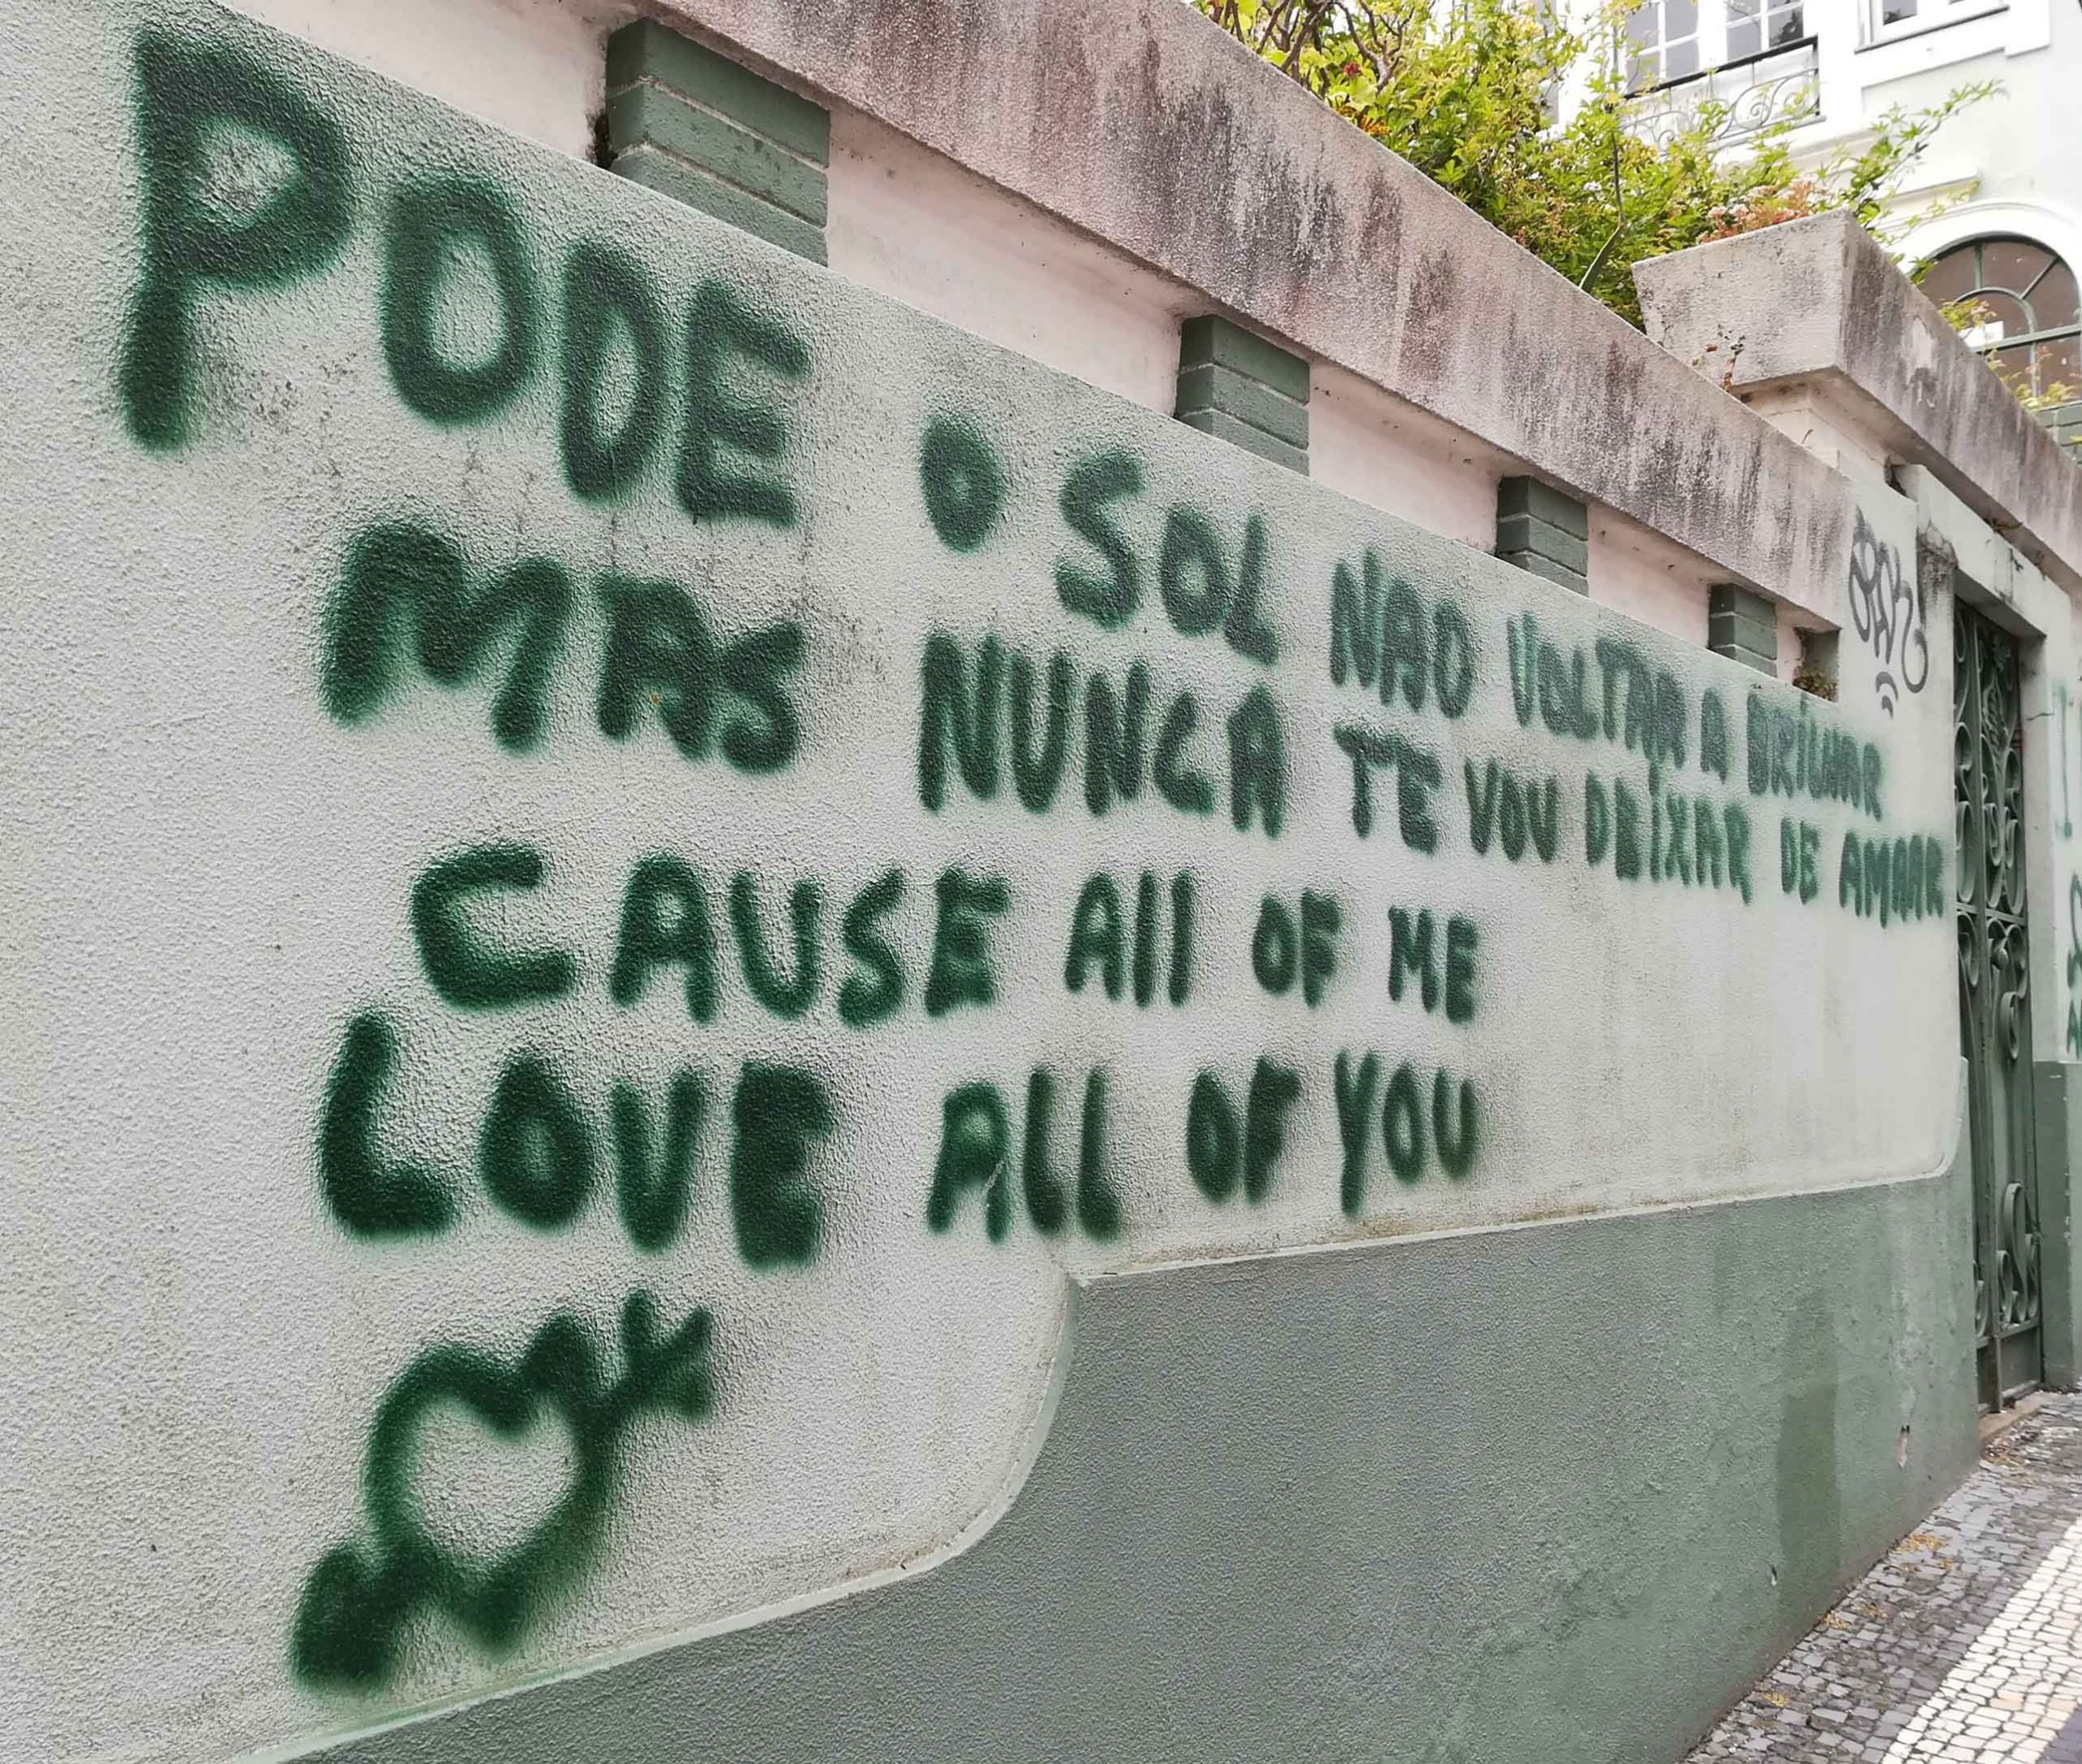 PODE O SOL NAO VOLTAR A BRILHAR
MAS NUNCA TE VOU DEIXAR DE AMAR
CAUSE All OF ME
LOVE ALL OF YOU